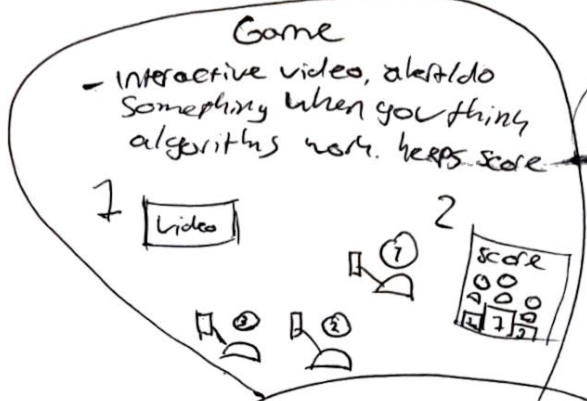 Game
- interactive video, alert/do
something when you think
algorithms work. keeps score
1
video
2
score
1
3
2
2 1 3